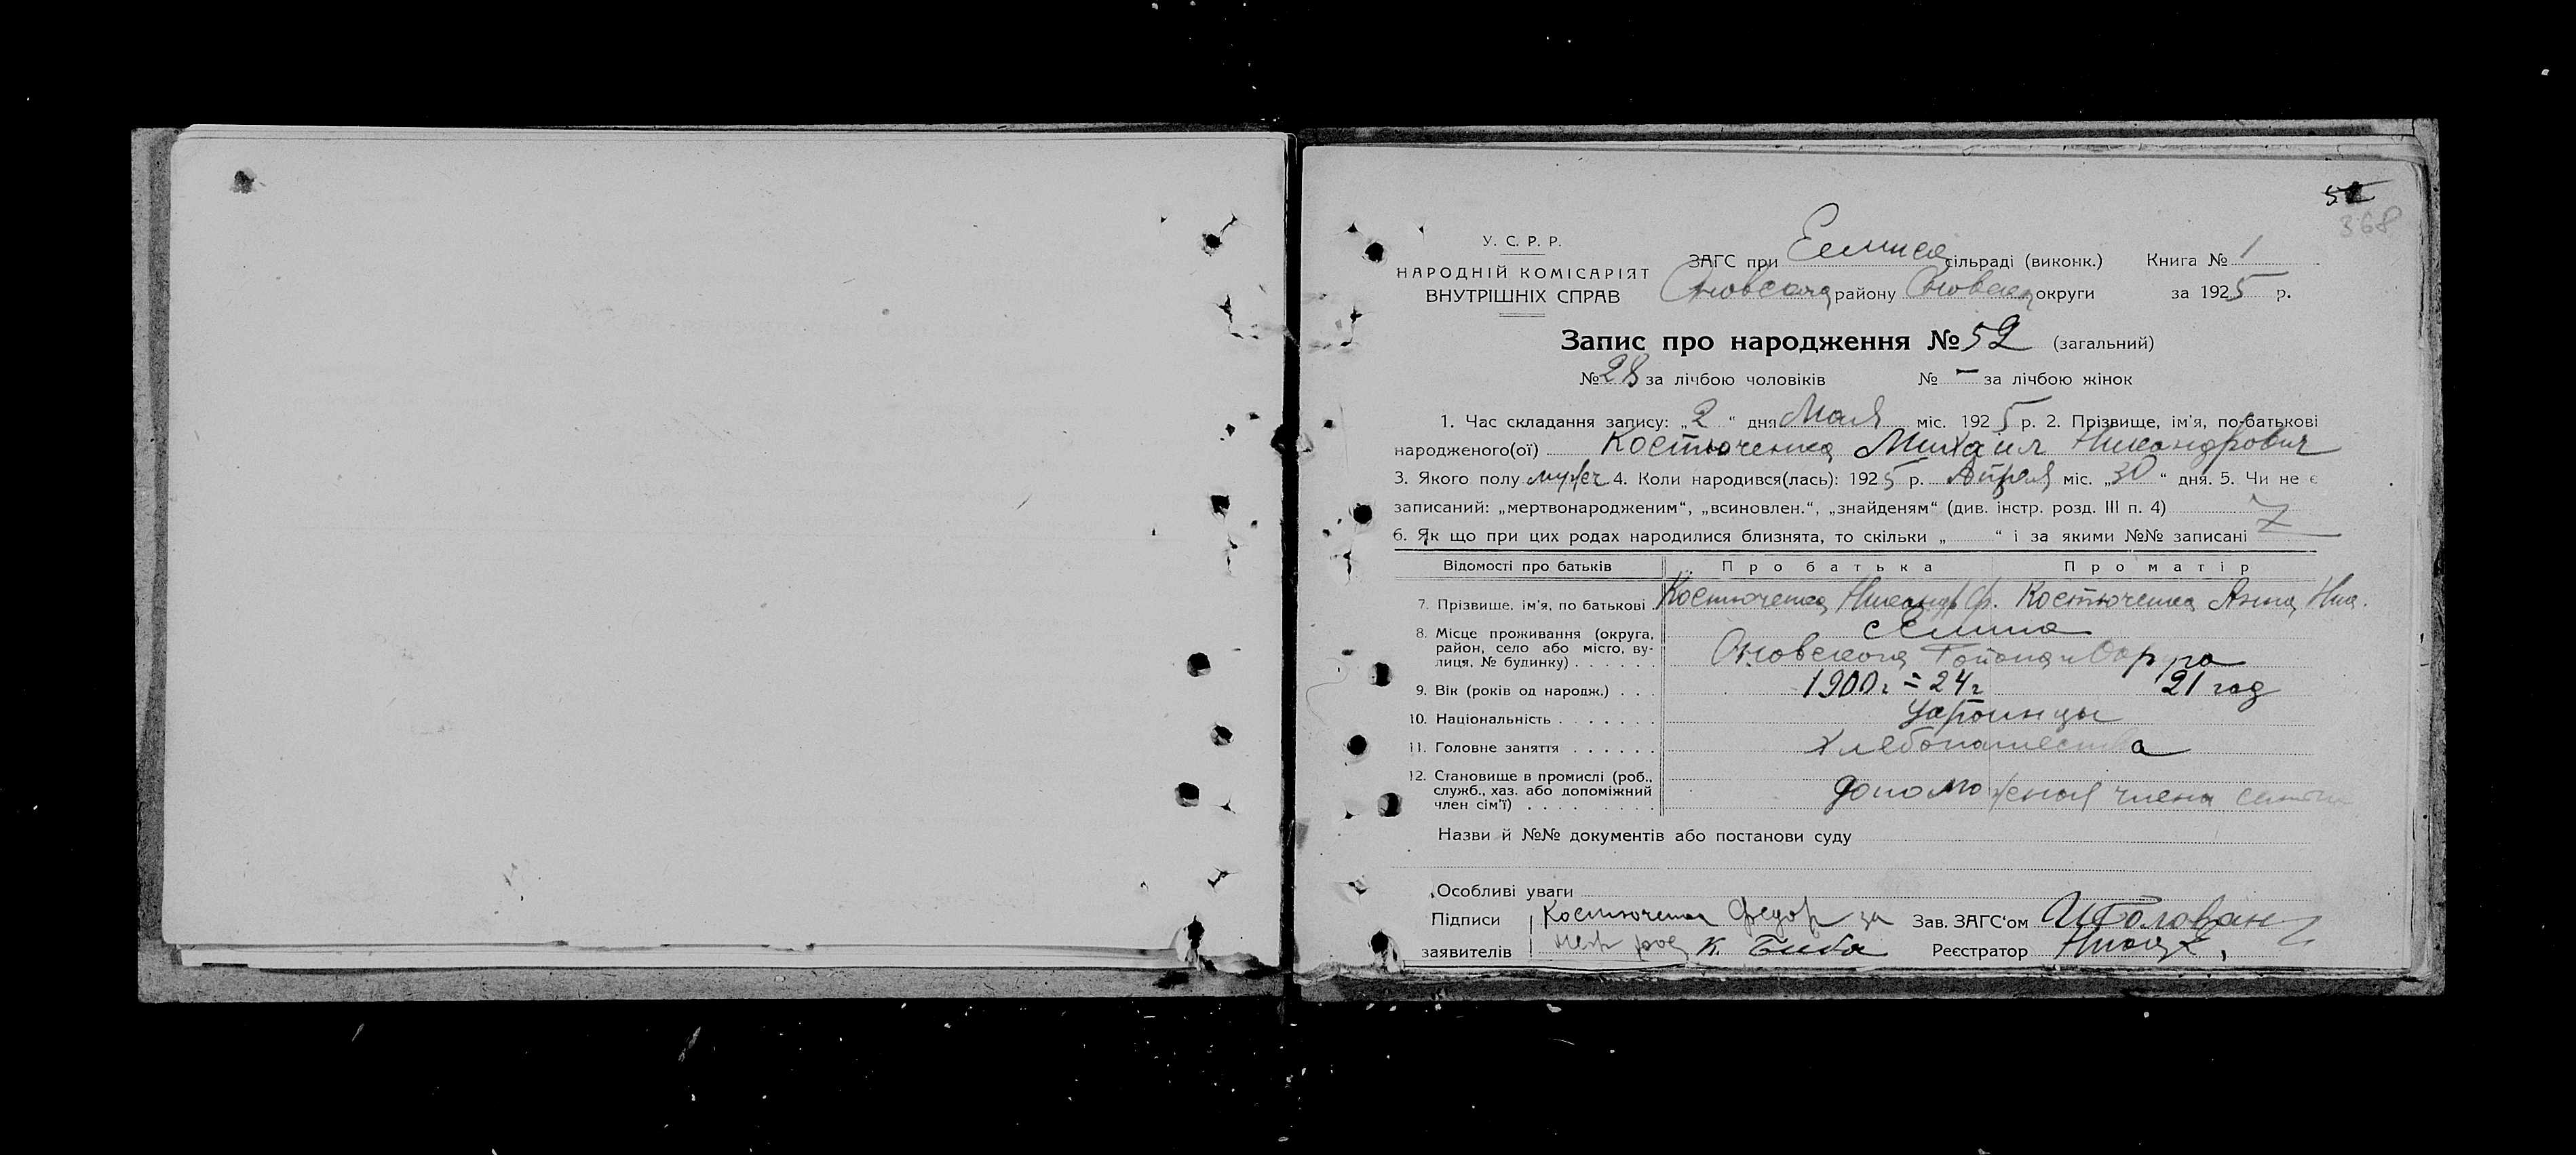 52
368
У. С. Р. Р.
НАРОДНІЙ КОМІСАРІЯТ
ВНУТРІШНІХ СПРАВ
ЗАГС при сільраді (виконк.) Книга № 1
Сновского району Сновской округи за 1925 р.
Запис про народження № 52 (загальний)
№ 28 за лічбою чоловіків № — за лічбою жінок
1. Час складання запису: „2“ дня Мая міс. 1925 р. 2. Прізвище, ім'я, по-батькові
народженого(ої) Костюченко Михаил Никандрович
3. Якого полу муж 4. Коли народився(лась): 1925 р. Апреля міс. „30“ дня. 5. Чи не є
записаний: „мертвонародженим“, „всиновлен.“, „знайденям“ (див. інстр. розд. III п. 4)
6. Як що при цих родах народилися близнята, то скільки „ “ і за якими №№ записані
Відомості про батьків Про батька Про матір
7. Прізвище, ім'я, по батькові Костюченко Никандр Ф. Костюченко Анна Ник.
8. Місце проживання (округа,
район, село або місто, ву-
лиця, № будинку) . . . . . .
Сновского Района и Округа
9. Вік (років од народж.) . . . 1900 г = 24 г 21 год
10. Національність . . . . . . . Украинцы
11. Головне заняття . . . . . . Хлебопашество
12. Становище в промислі (роб.,
служб., хаз. або допоміжний
член сім'ї) . . . . . . . . .
члена семьи
Назви й №№ документів або постанови суду
Особливі уваги
Підписи Костюченко Федор за Зав. ЗАГС'ом
заявителів К. Биба Реєстратор